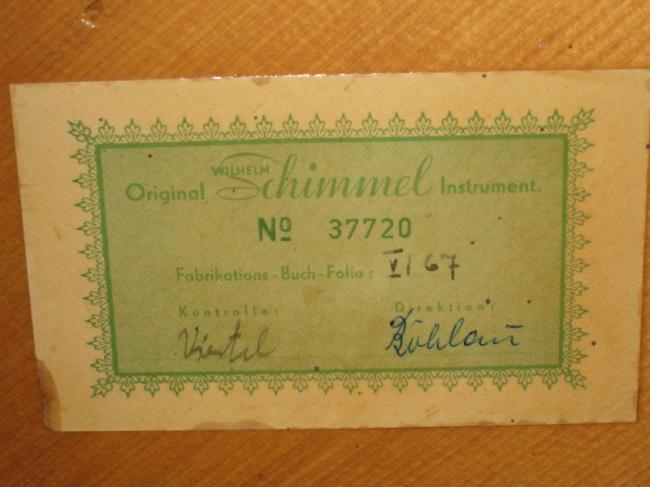 Original WILHELM Schimmel Instrument.
Nº 37720
Fabrikations-Buch-Folio: VI 67
Kontrolle: Direktion:
Viertel